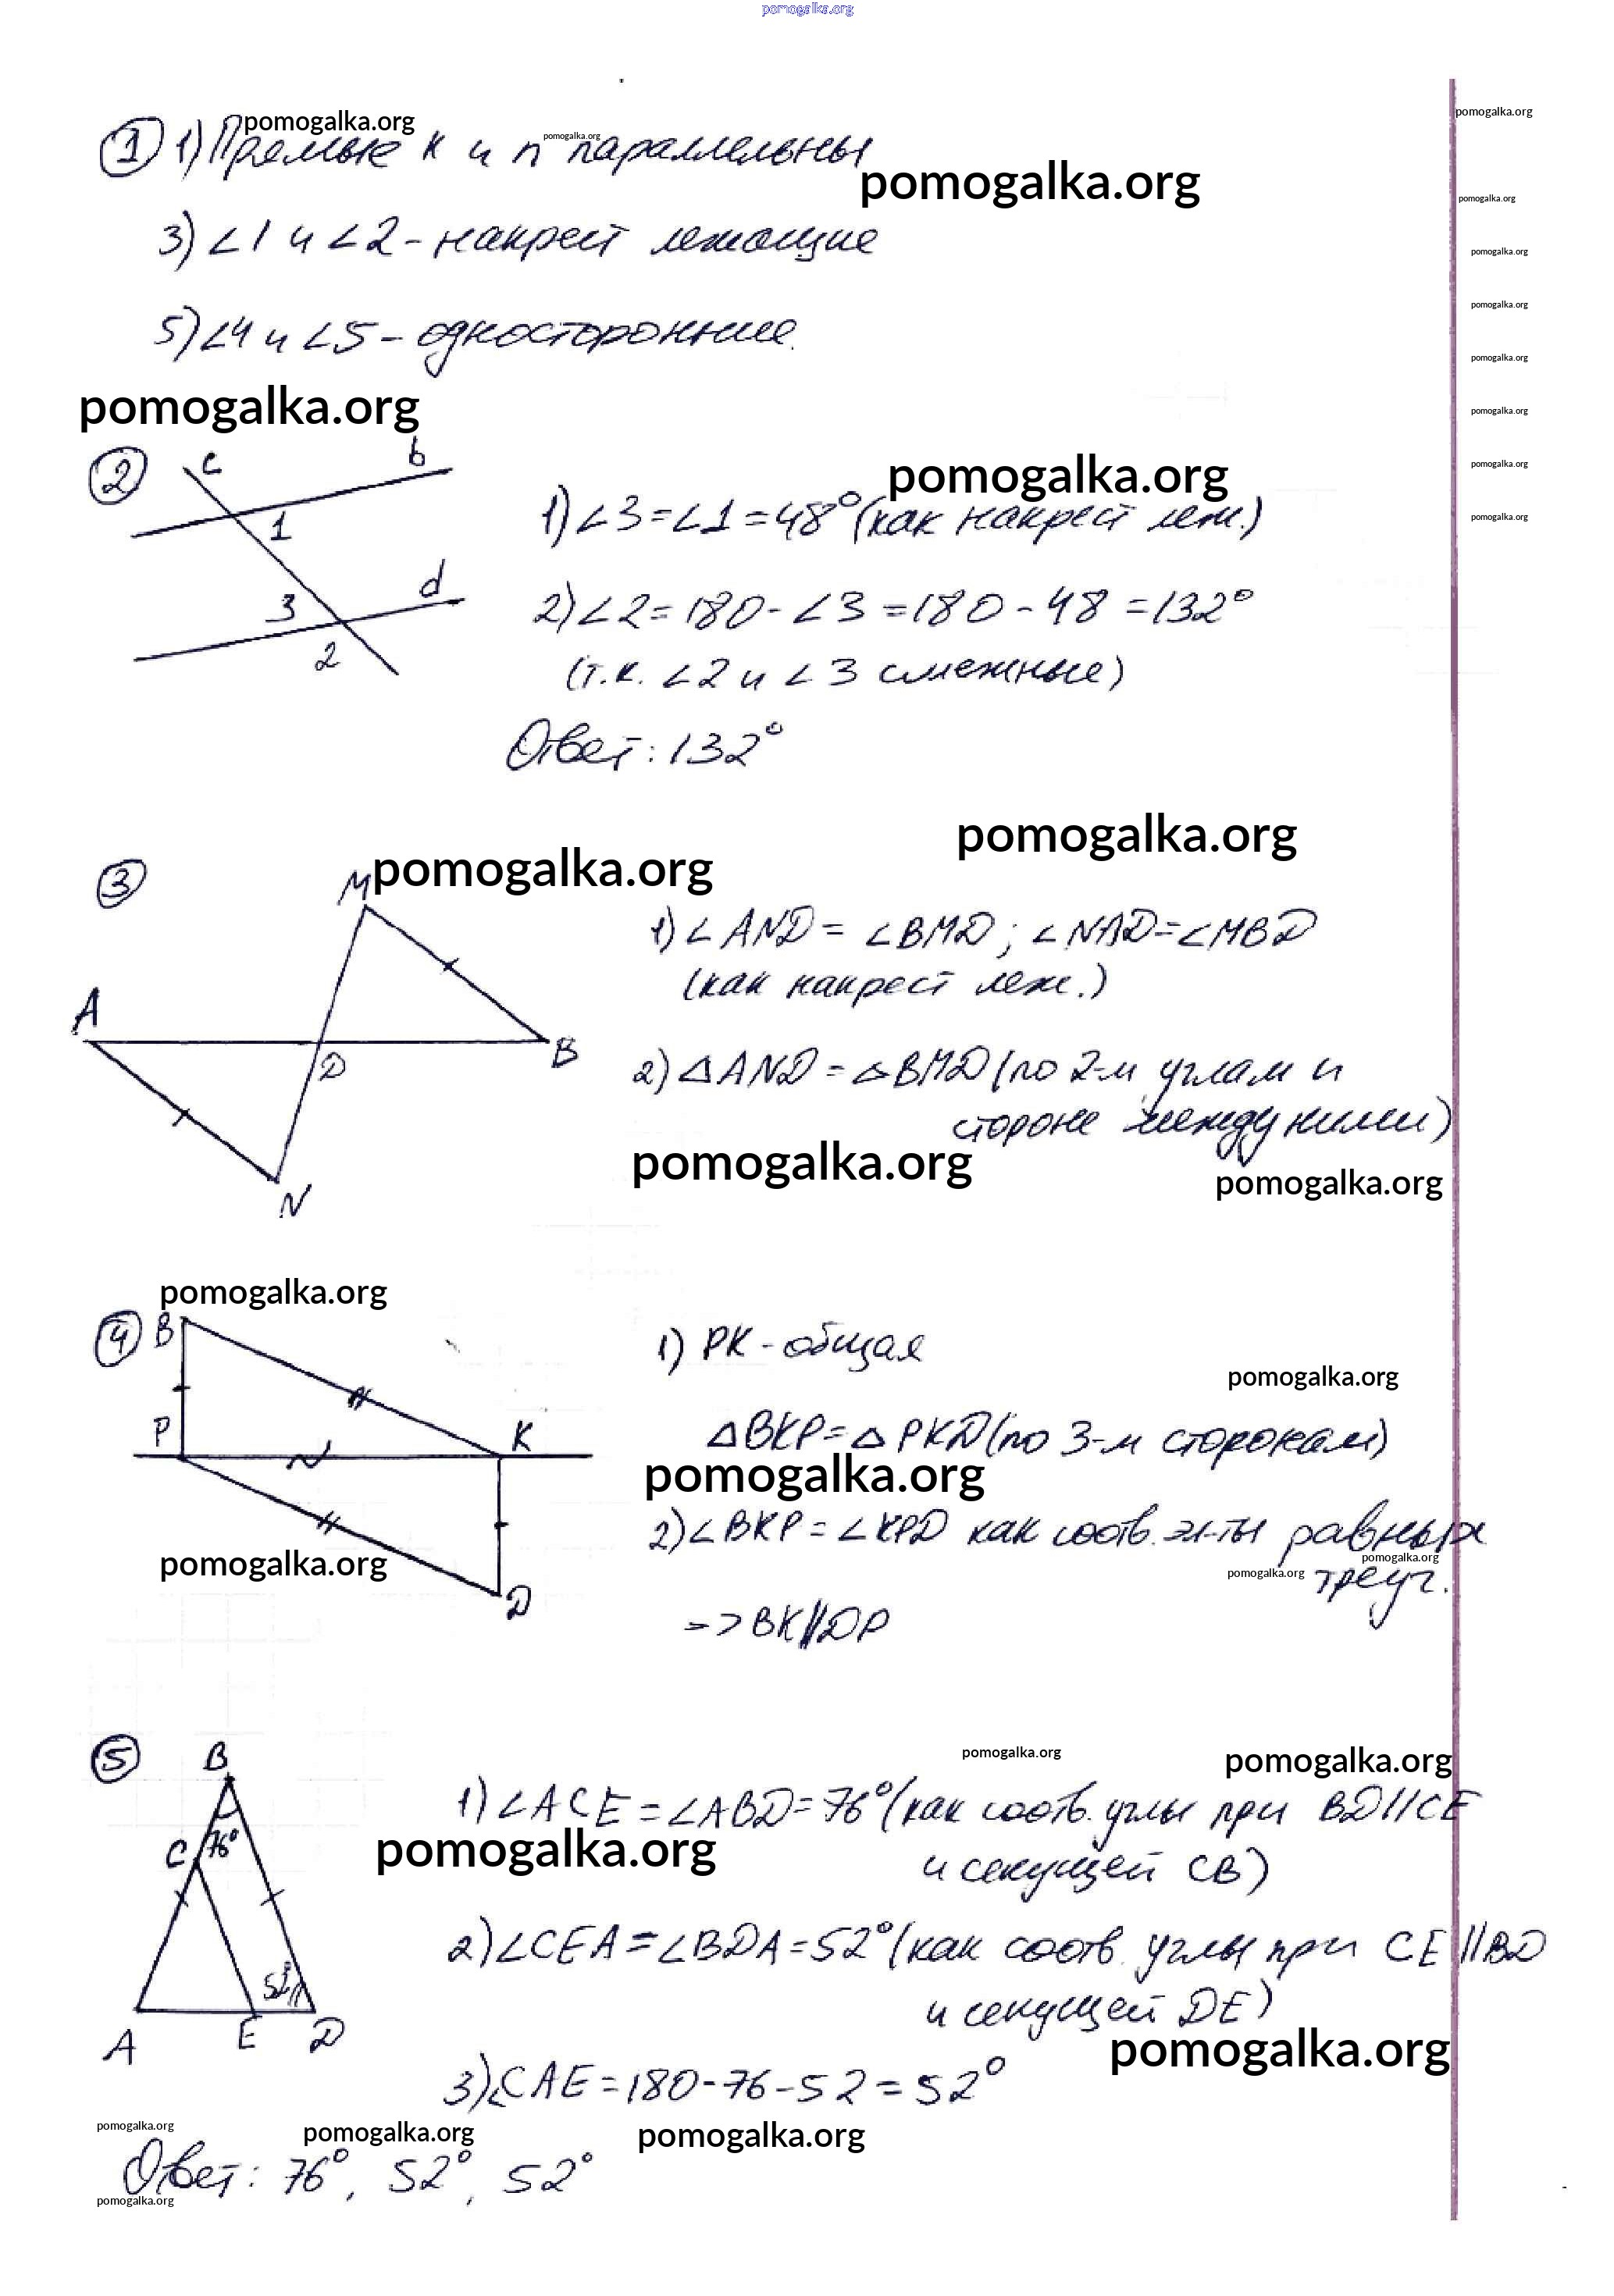 pomogalka.org
① 1) Прямые k и n параллельны
pomogalka.org
pomogalka.org
pomogalka.org
pomogalka.org
pomogalka.org
3) ∠1 и ∠2 - накрест лежащие
pomogalka.org
pomogalka.org
5) ∠4 и ∠5 - односторонние.
pomogalka.org
pomogalka.org
pomogalka.org
② c b
pomogalka.org
pomogalka.org
pomogalka.org
1
1) ∠3 = ∠1 = 48° (как накрест леж.)
d
3
2) ∠2 = 180 - ∠3 = 180 - 48 = 132°
2
(т.к. ∠2 и ∠3 смежные)
Ответ: 132°
pomogalka.org
③ M
pomogalka.org
1) ∠AND = ∠BMD ; ∠NAD = ∠MBD
(как накрест леж.)
A
D B
2) △AND = △BMD (по 2-м углам и
стороне между ними)
pomogalka.org
pomogalka.org
N
pomogalka.org
④ B
1) PK - общая
pomogalka.org
P K
△BKP = △PKD (по 3-м сторонам)
pomogalka.org
2) ∠BKP = ∠KPD как соотв. эл-ты равных
pomogalka.org
pomogalka.org
pomogalka.org
треуг.
D
=> BK//DP
⑤ B
pomogalka.org
pomogalka.org
1) ∠ACE = ∠ABD = 76° (как соотв. углы при BD//CE
C 76°
pomogalka.org
и секущей CB)
2) ∠CEA = ∠BDA = 52° (как соотв. углы при CE//BD
52°
и секущей DE)
A E D
pomogalka.org
3) ∠CAE = 180 - 76 - 52 = 52°
pomogalka.org
pomogalka.org
pomogalka.org
Ответ: 76°, 52°, 52°
pomogalka.org